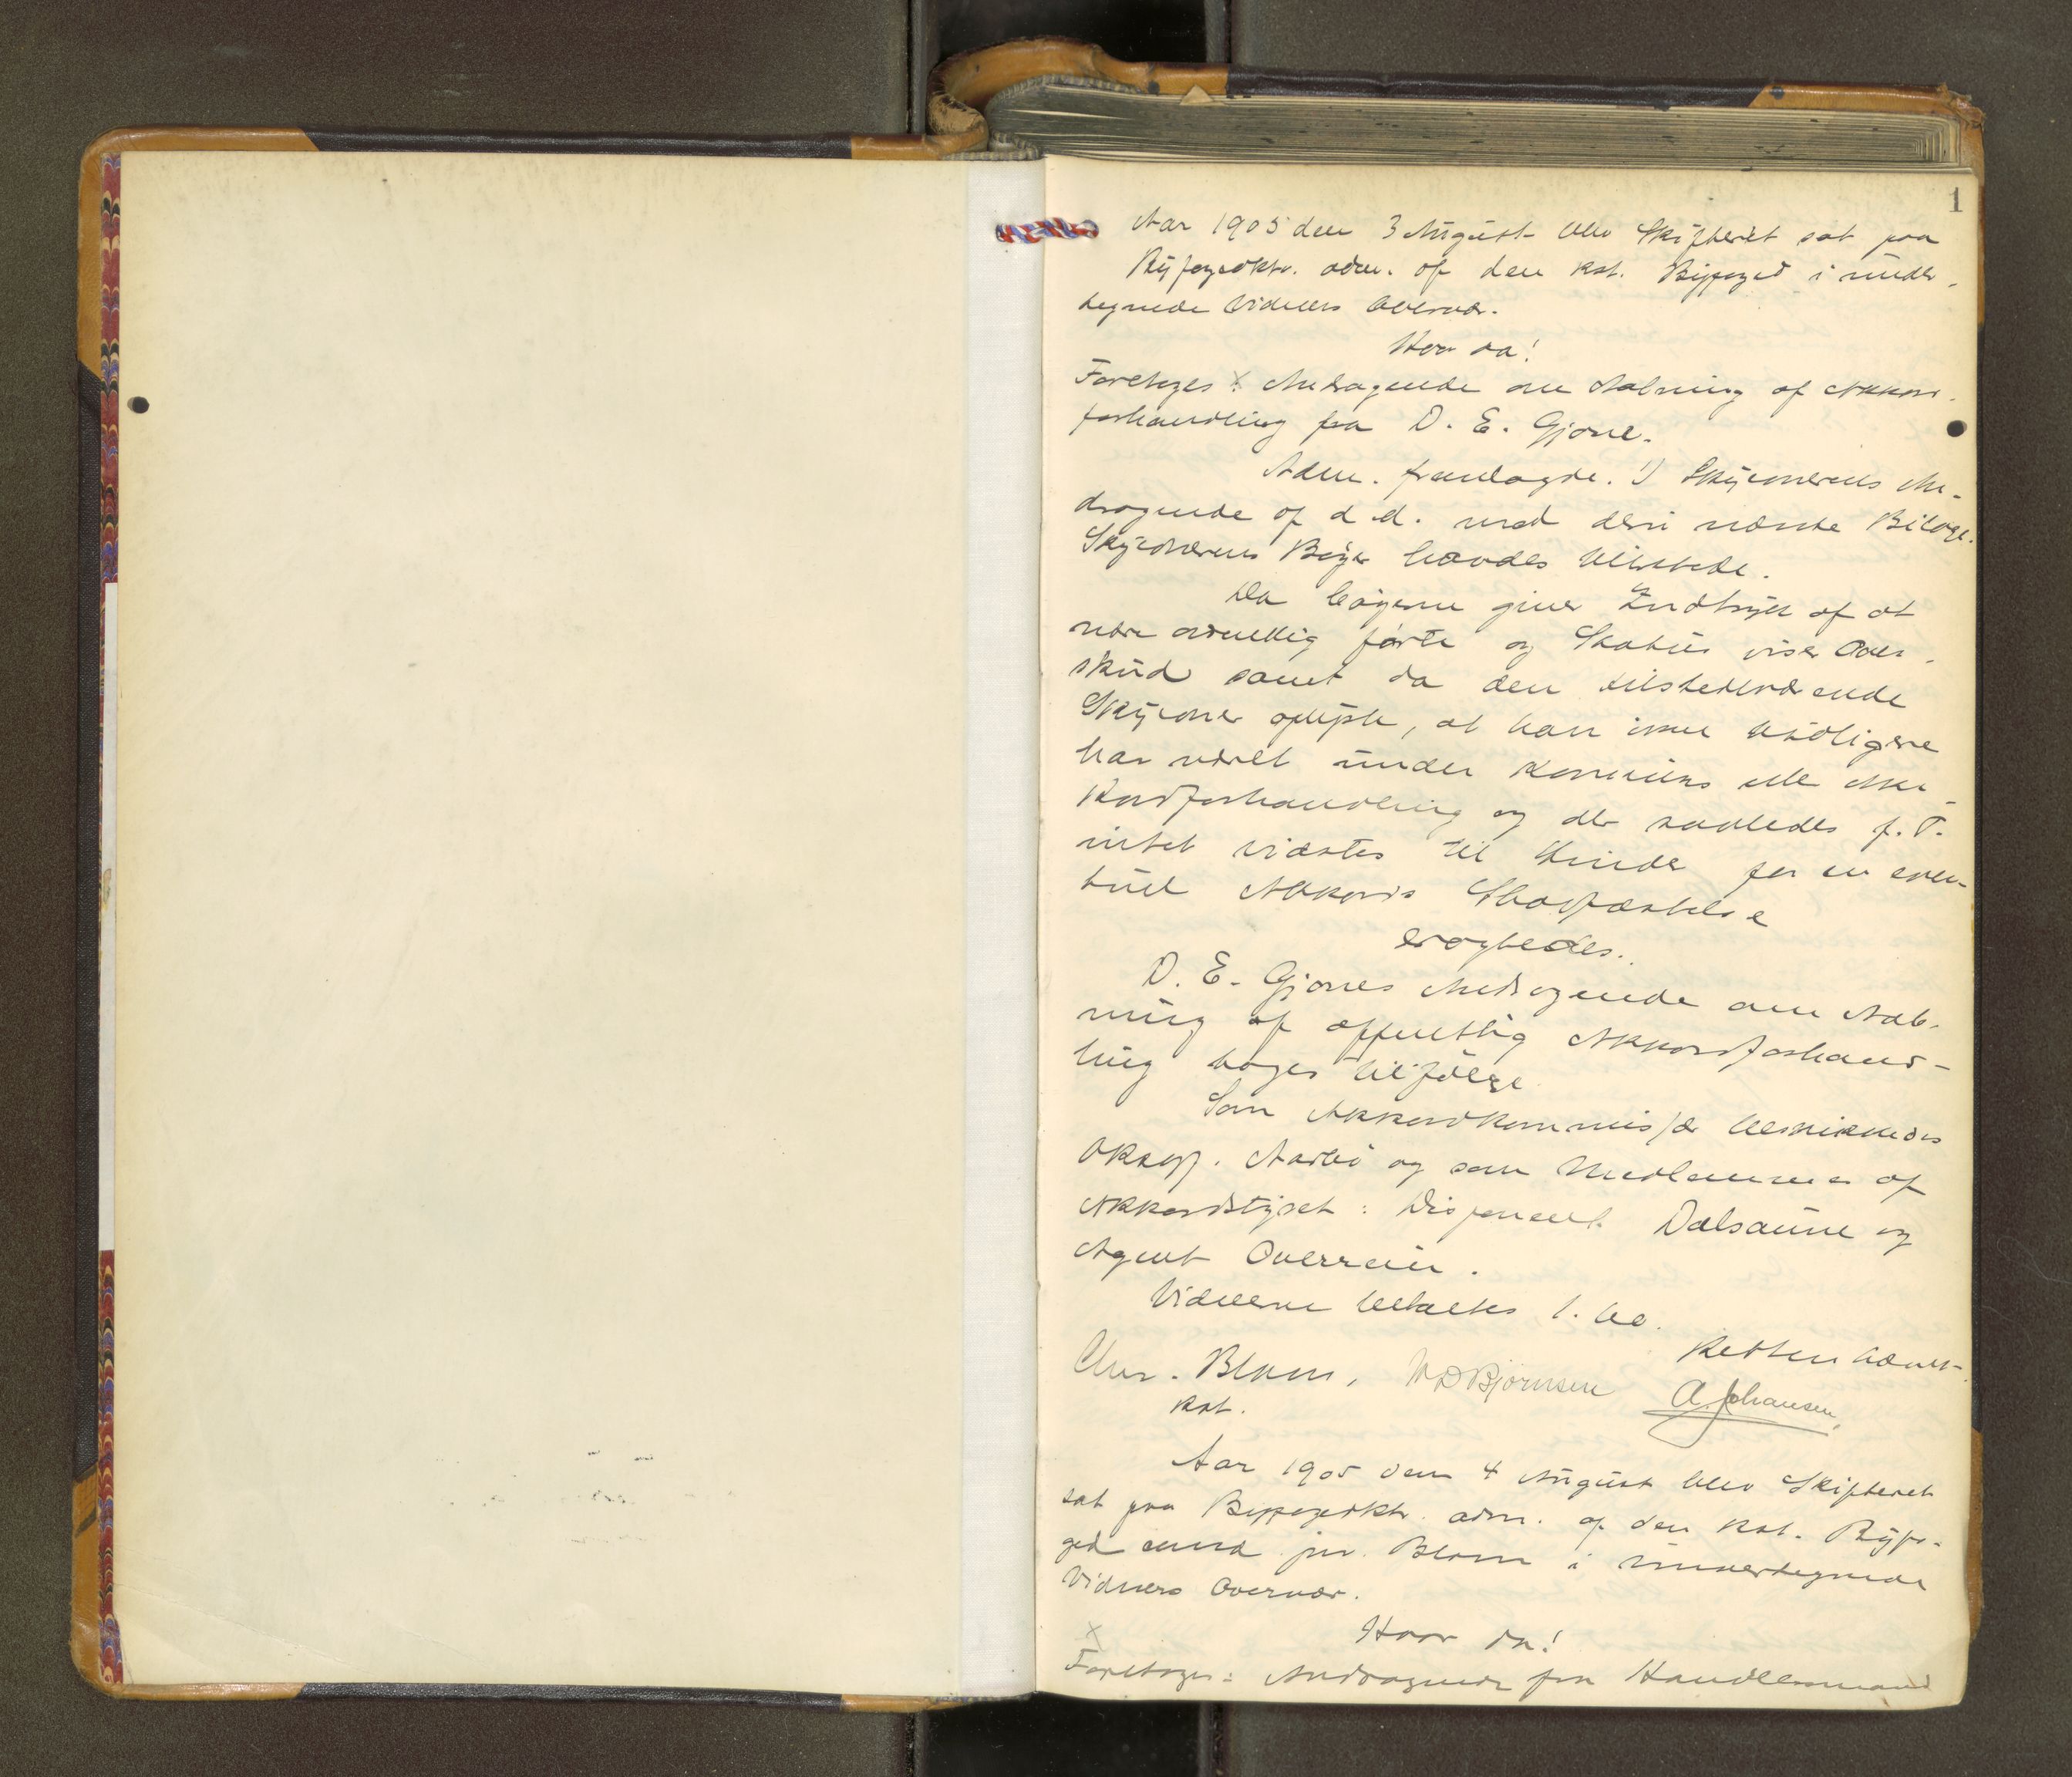 1
Aar 1905 den 3 August blev Skifteret sat paa
Byfogedktr. adm. af den kst. Byfoged i under-
tegnede Vidners Overvær.
Hvor da!
Foretoges x Andragende om Aabning af Akkord-
forhandling fra D. E. Gjone.
Adm. fremlagde. 1) Skyldnerens An-
dragende af d.d. med deri nævnte Bilage.
Skyldnerens Bøger havdes tilstede.
Da bøgerne giver Indtryk af at
være ordentlig førte og Status viser Over-
skud samt da den tilstedeværende
Skyldner oplyste, at han ikke tidligere
har været under Konkurs eller Ak-
kordforhandling og der saaledes f. T.
intet vidstes til Hinder for en even-
tuel Akkords Stadfæstelse
eragtedes.
D. E. Gjones Andragende om Aab-
ning af offentlig Akkordforhand-
ling tages tilfølge
Som Akkordkommissær beskikkedes
Oksagf. Aarbø og som Medlemmer af
Akkordstyret: Disponent Dalsaune og
Agent Overrein.
Vidnerne betaltes l. bo.
Retten hævet.
Chr. Blom, A Johansen,
kst.
Aar 1905 den 4 August blev Skifteret
sat paa Byfogedktr. adm. af den kst. Byfo-
ged cand. jur. Blom i undertegnede
Vidners Overvær.
Hvor da!
x
Foretoges: Andragende fra Handelsmand